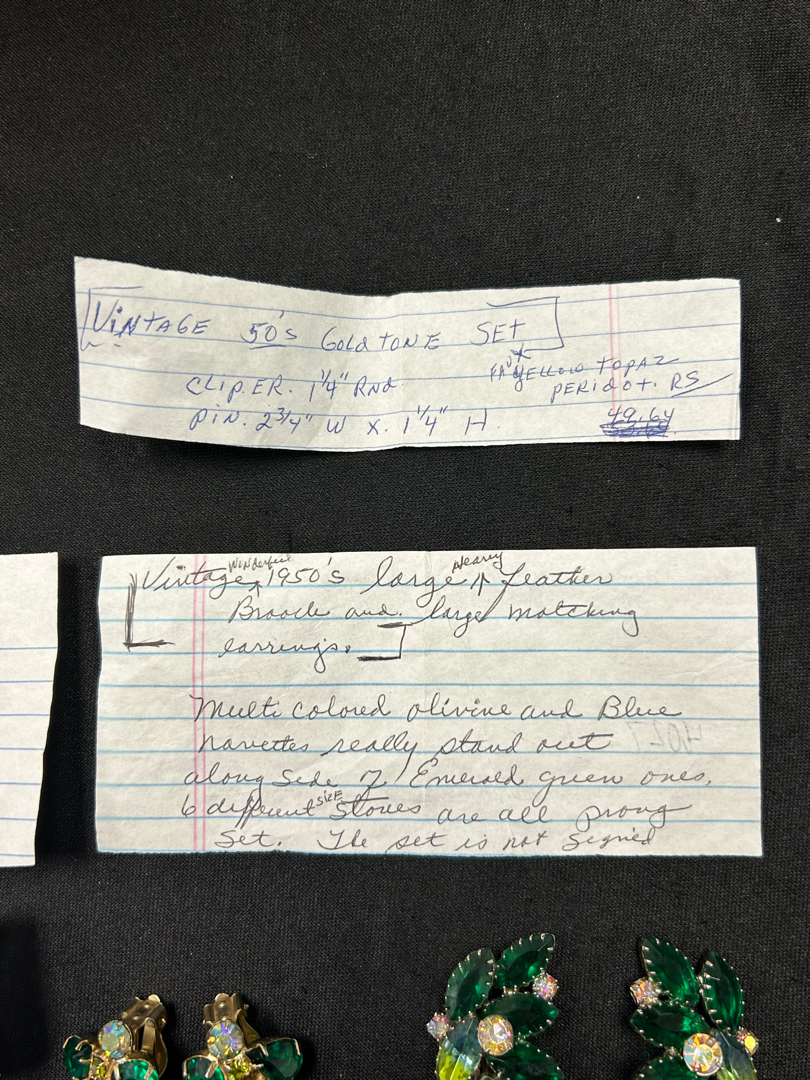 VINTAGE 50's GOLDTONE SET
CLIP. ER. 1 1/4" RND
FAUX YELLOW TOPAZ
PERIDOT. RS
PIN. 2 3/4" W X. 1 1/4" H.
49.64
Vintage Wonderful 1950's large Heavy feather
Brooch and large matching
earrings.
Multi colored olivine and Blue
navettes really stand out
along side of Emerald green ones.
6 different size stones are all prong
Set. The set is not signed